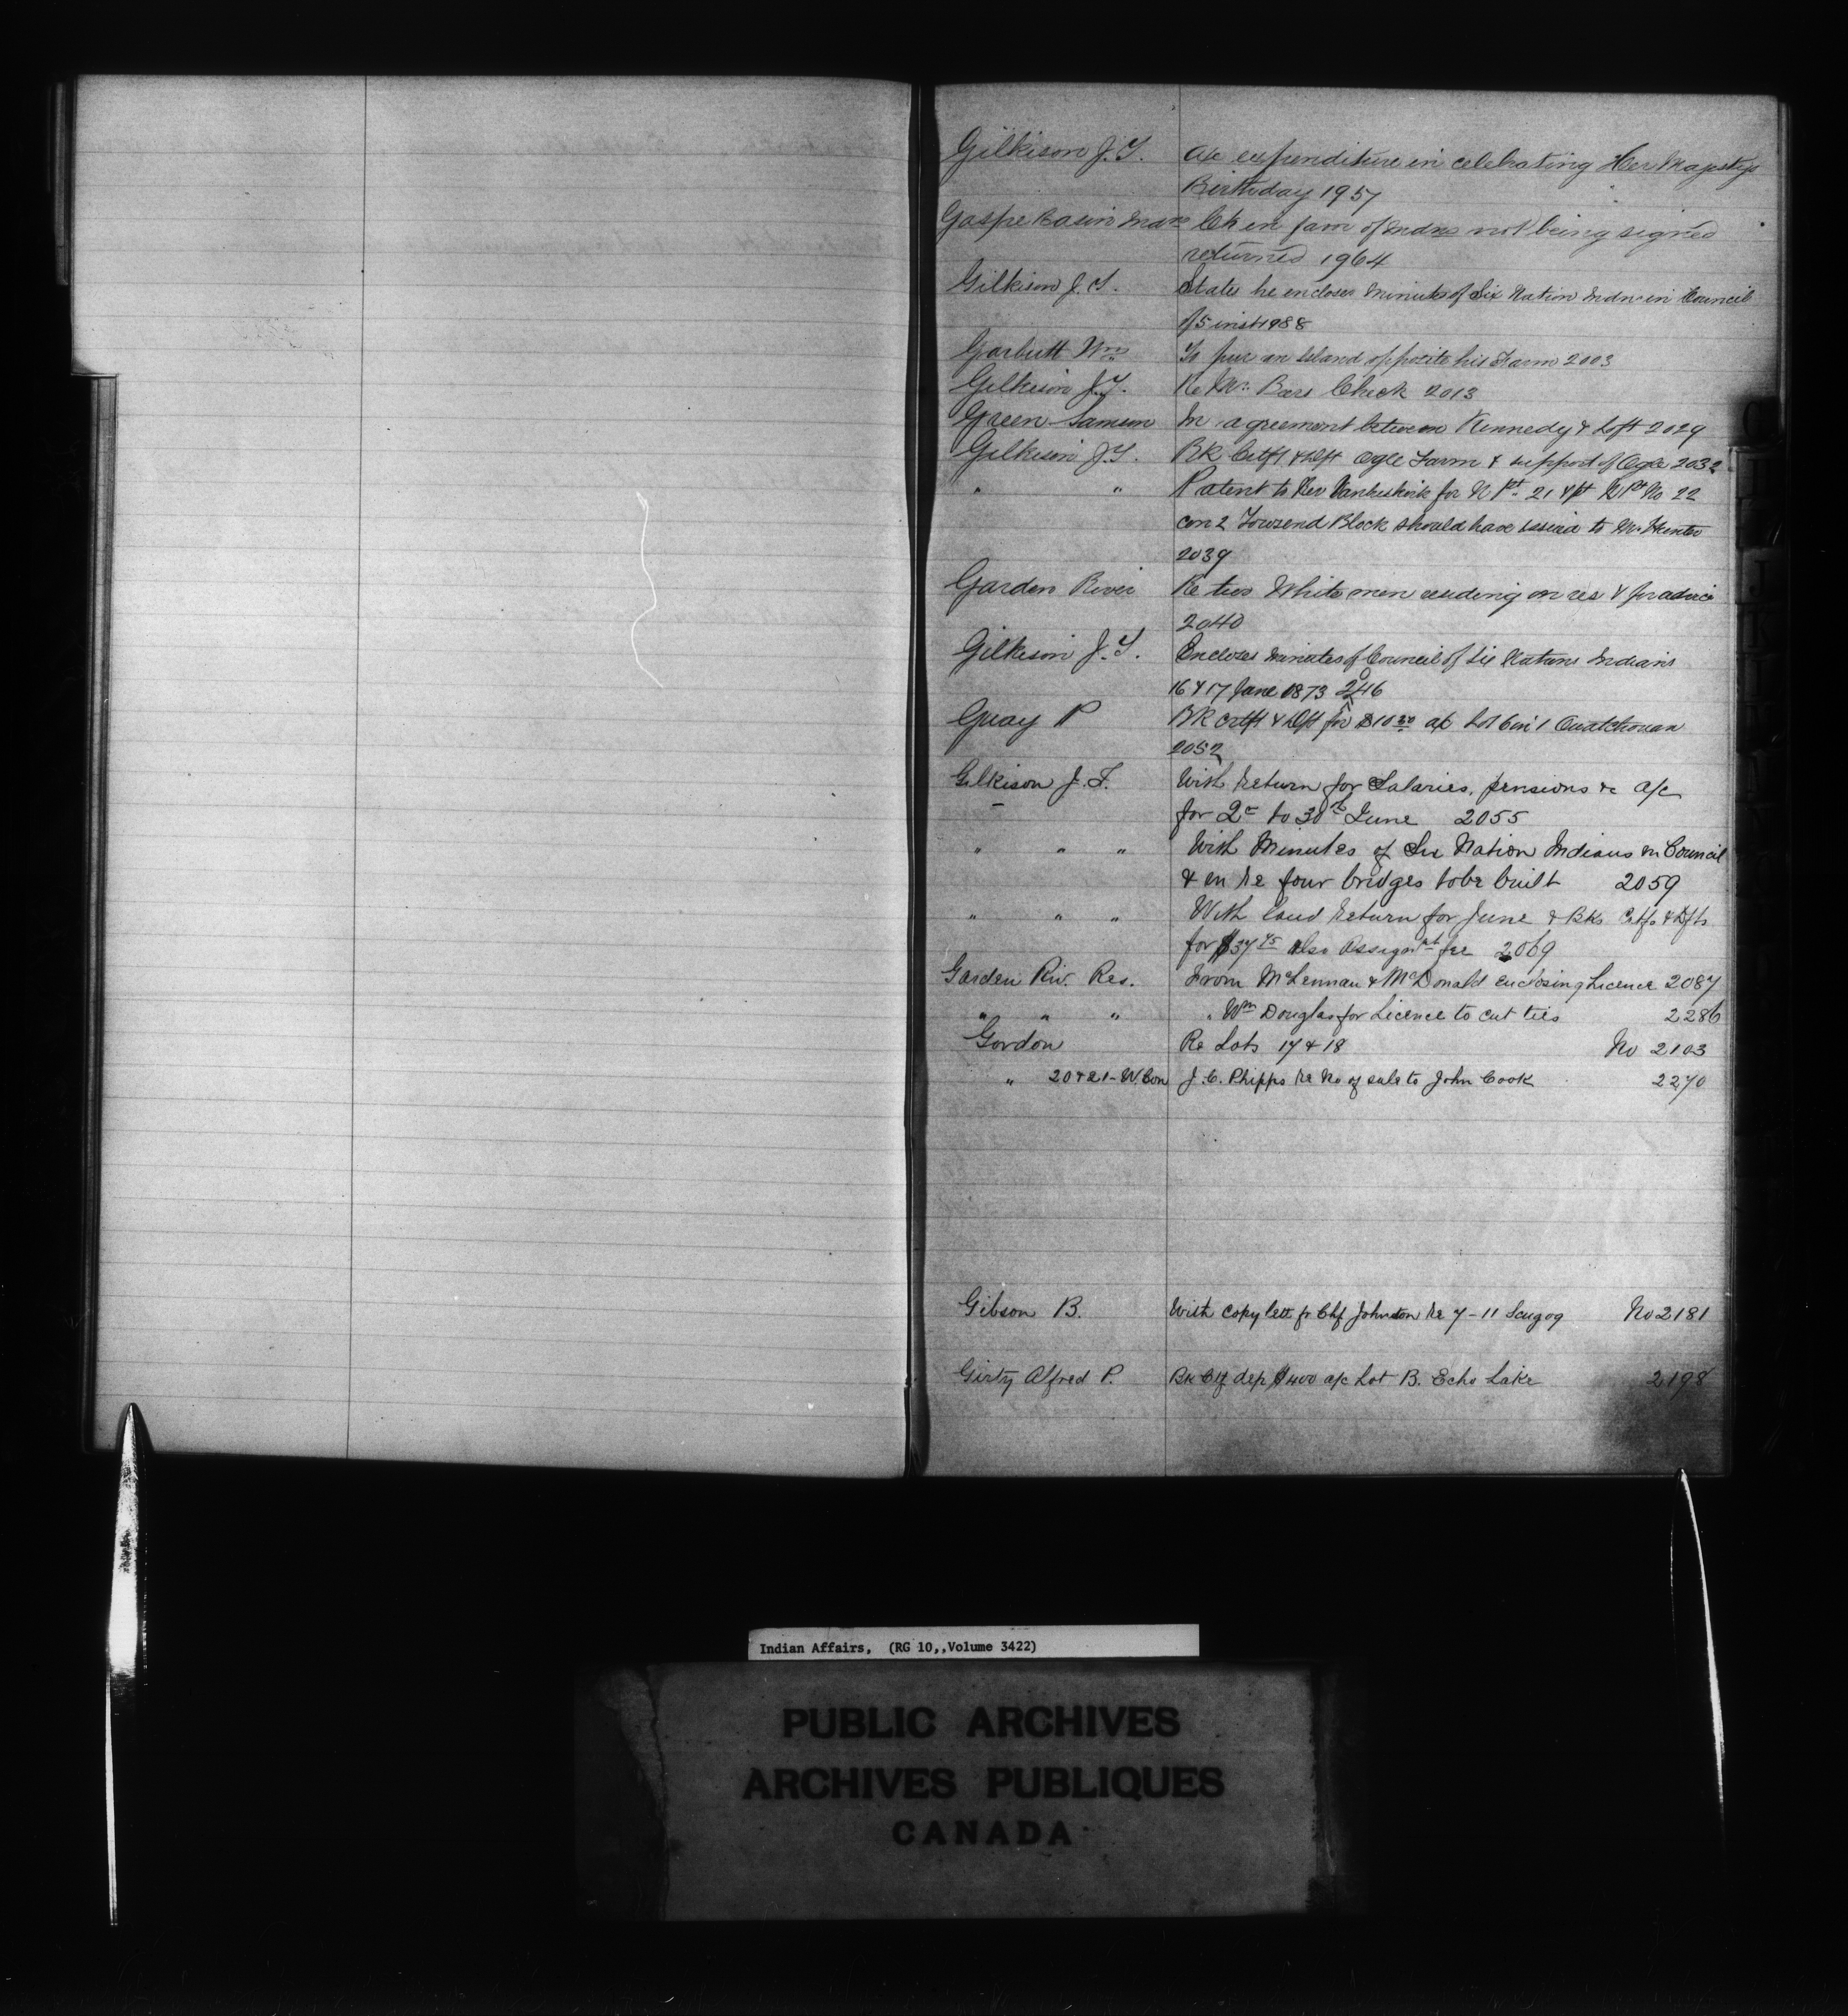 Gilkison J.T. a/c expenditure in celebrating Her Majestys
Birthday 1957
Gaspe Basin Indns Ck in favr of Indns not being signed
returned 1964
Gilkison J.T. States he encloses minutes of Six Nation Indns in Council
of 5 inst 1988
Garbutt Wm To pur an Island opposite his Farm 2003
Gilkison J.T. Re Mr. Check 2013
Green Samson In agreement between Kennedy & Loft 2029
Gilkison J.T. BK Certft & Dft Ogle Farm & support of Ogle 2032
" " Patent to Rev Vanbuskirk for N Pt 21 & pt Pt No 22
con 2 Townsend Block should have issued to Mr Hunter
2039
Garden River Re two White men residing on res & for advice
2040
Gilkison J.T. Encloses minutes of Council of Six Nations Indians
16 & 17 June 1873 2046
Guay P BK Crtft & Dft for $10 30 a/c Lot 6 in 1 Ouatchouan
2052
Gilkison J.T. With Return for Salaries, pensions &c a/c
for 2d to 30th June 2055
" " " With Minutes of Six Nation Indians in Council
& en re four bridges to be built 2059
" " " With land Return for June & Bks Ctfs & Dfts
for $37 45 also Assignmt fee 2069
Garden Riv. Res. From McLennan & McDonald enclosing Licence 2087
" " " " Wm Douglas for Licence to cut ties 2286
Gordon Re Lots 17 & 18 No 2103
" 20 & 21 - W. Con J.C. Phipps re No of sale to John Cook 2270
Gibson B. With copy lett fr Chf Johnston re 7-11 Scugog No 2181
Girty Alfred P. Bk Ctf dep $400 a/c Lot B. Echo Lake 2198
Indian Affairs, (RG 10,,Volume 3422)
PUBLIC ARCHIVES
ARCHIVES PUBLIQUES
CANADA